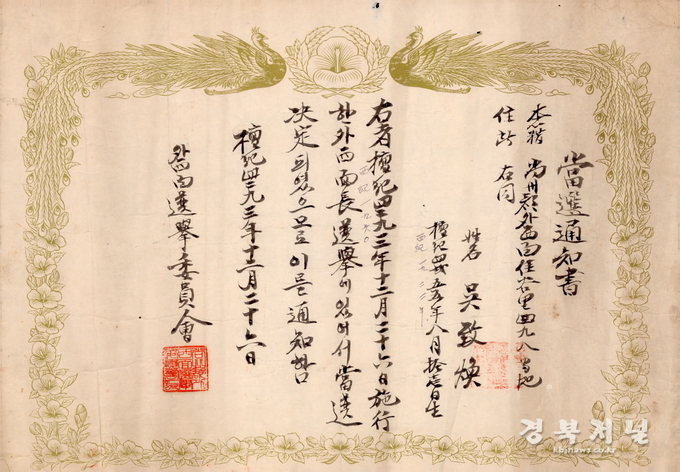 當選通知書
本籍 尙州郡外西面 里四九八番地
住所 右同
姓名 吳致煥
檀紀四二五五年八月拾壱日生
西紀一九二二年
右者檀紀四二九三年十二月二十六日施行
西紀一九六〇
한外西面長選擧에있어서當選
決定되었으므로이를通知함
檀紀四二九三年十二月二十六日
外西面選擧委員會
경북저널
kbjnaws.co.kr